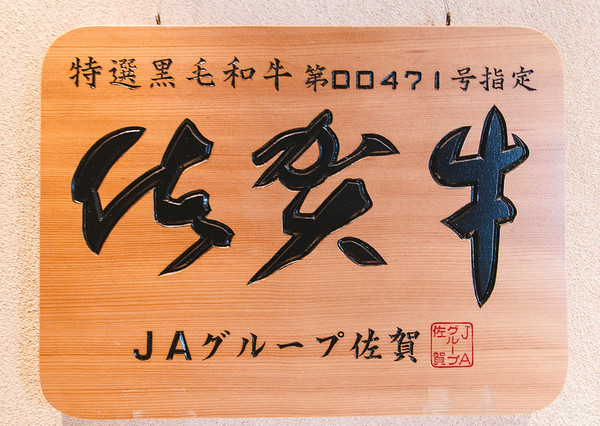 特選黒毛和牛 第00471号指定
佐賀牛
JAグループ佐賀
JA
グループ
佐賀